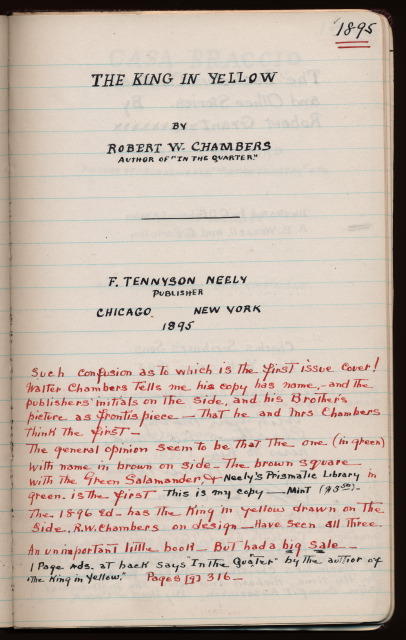 1895
THE KING IN YELLOW
BY
ROBERT W. CHAMBERS
AUTHOR OF "IN THE QUARTER."
F. TENNYSON NEELY
PUBLISHER
CHICAGO. NEW YORK
1895
Such confusion as to which is the first issue cover!
Walter Chambers Tells me his copy has name,- and the
publishers' initials on the side, and his Brother's
picture as frontispiece — That he and Mrs Chambers
Think the first —
The general opinion seem to be that the one (in green)
with name in brown on side - The brown square
with the Green Salamander, & Neely's Prismatic Library in
green. is the first This is my copy — Mint
The 1896 Ed - has the King in yellow drawn on the
Side. R.W. Chambers on design — Have seen all three.
An unimportant little book — But had a big sale —
1 Page Ads. at back says "In the Quater" by the author of
"The King in Yellow." Pages [9] 316 —